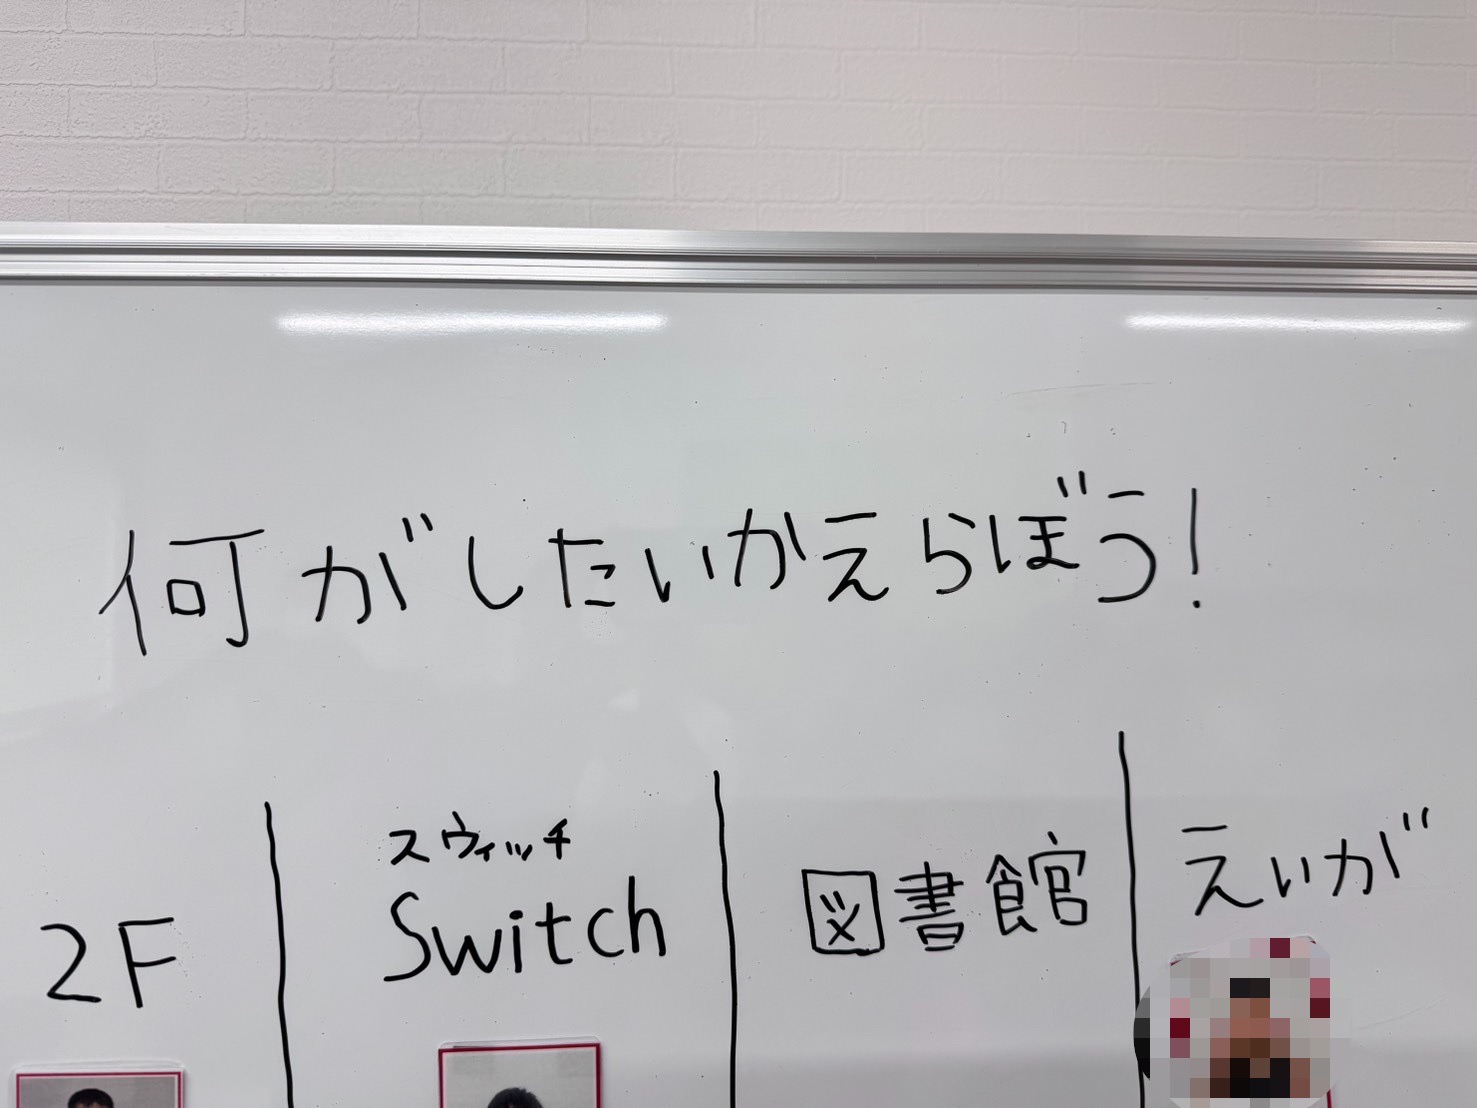 何がしたいかえらぼう!
2F
スウィッチ
Switch
図書館
えいが